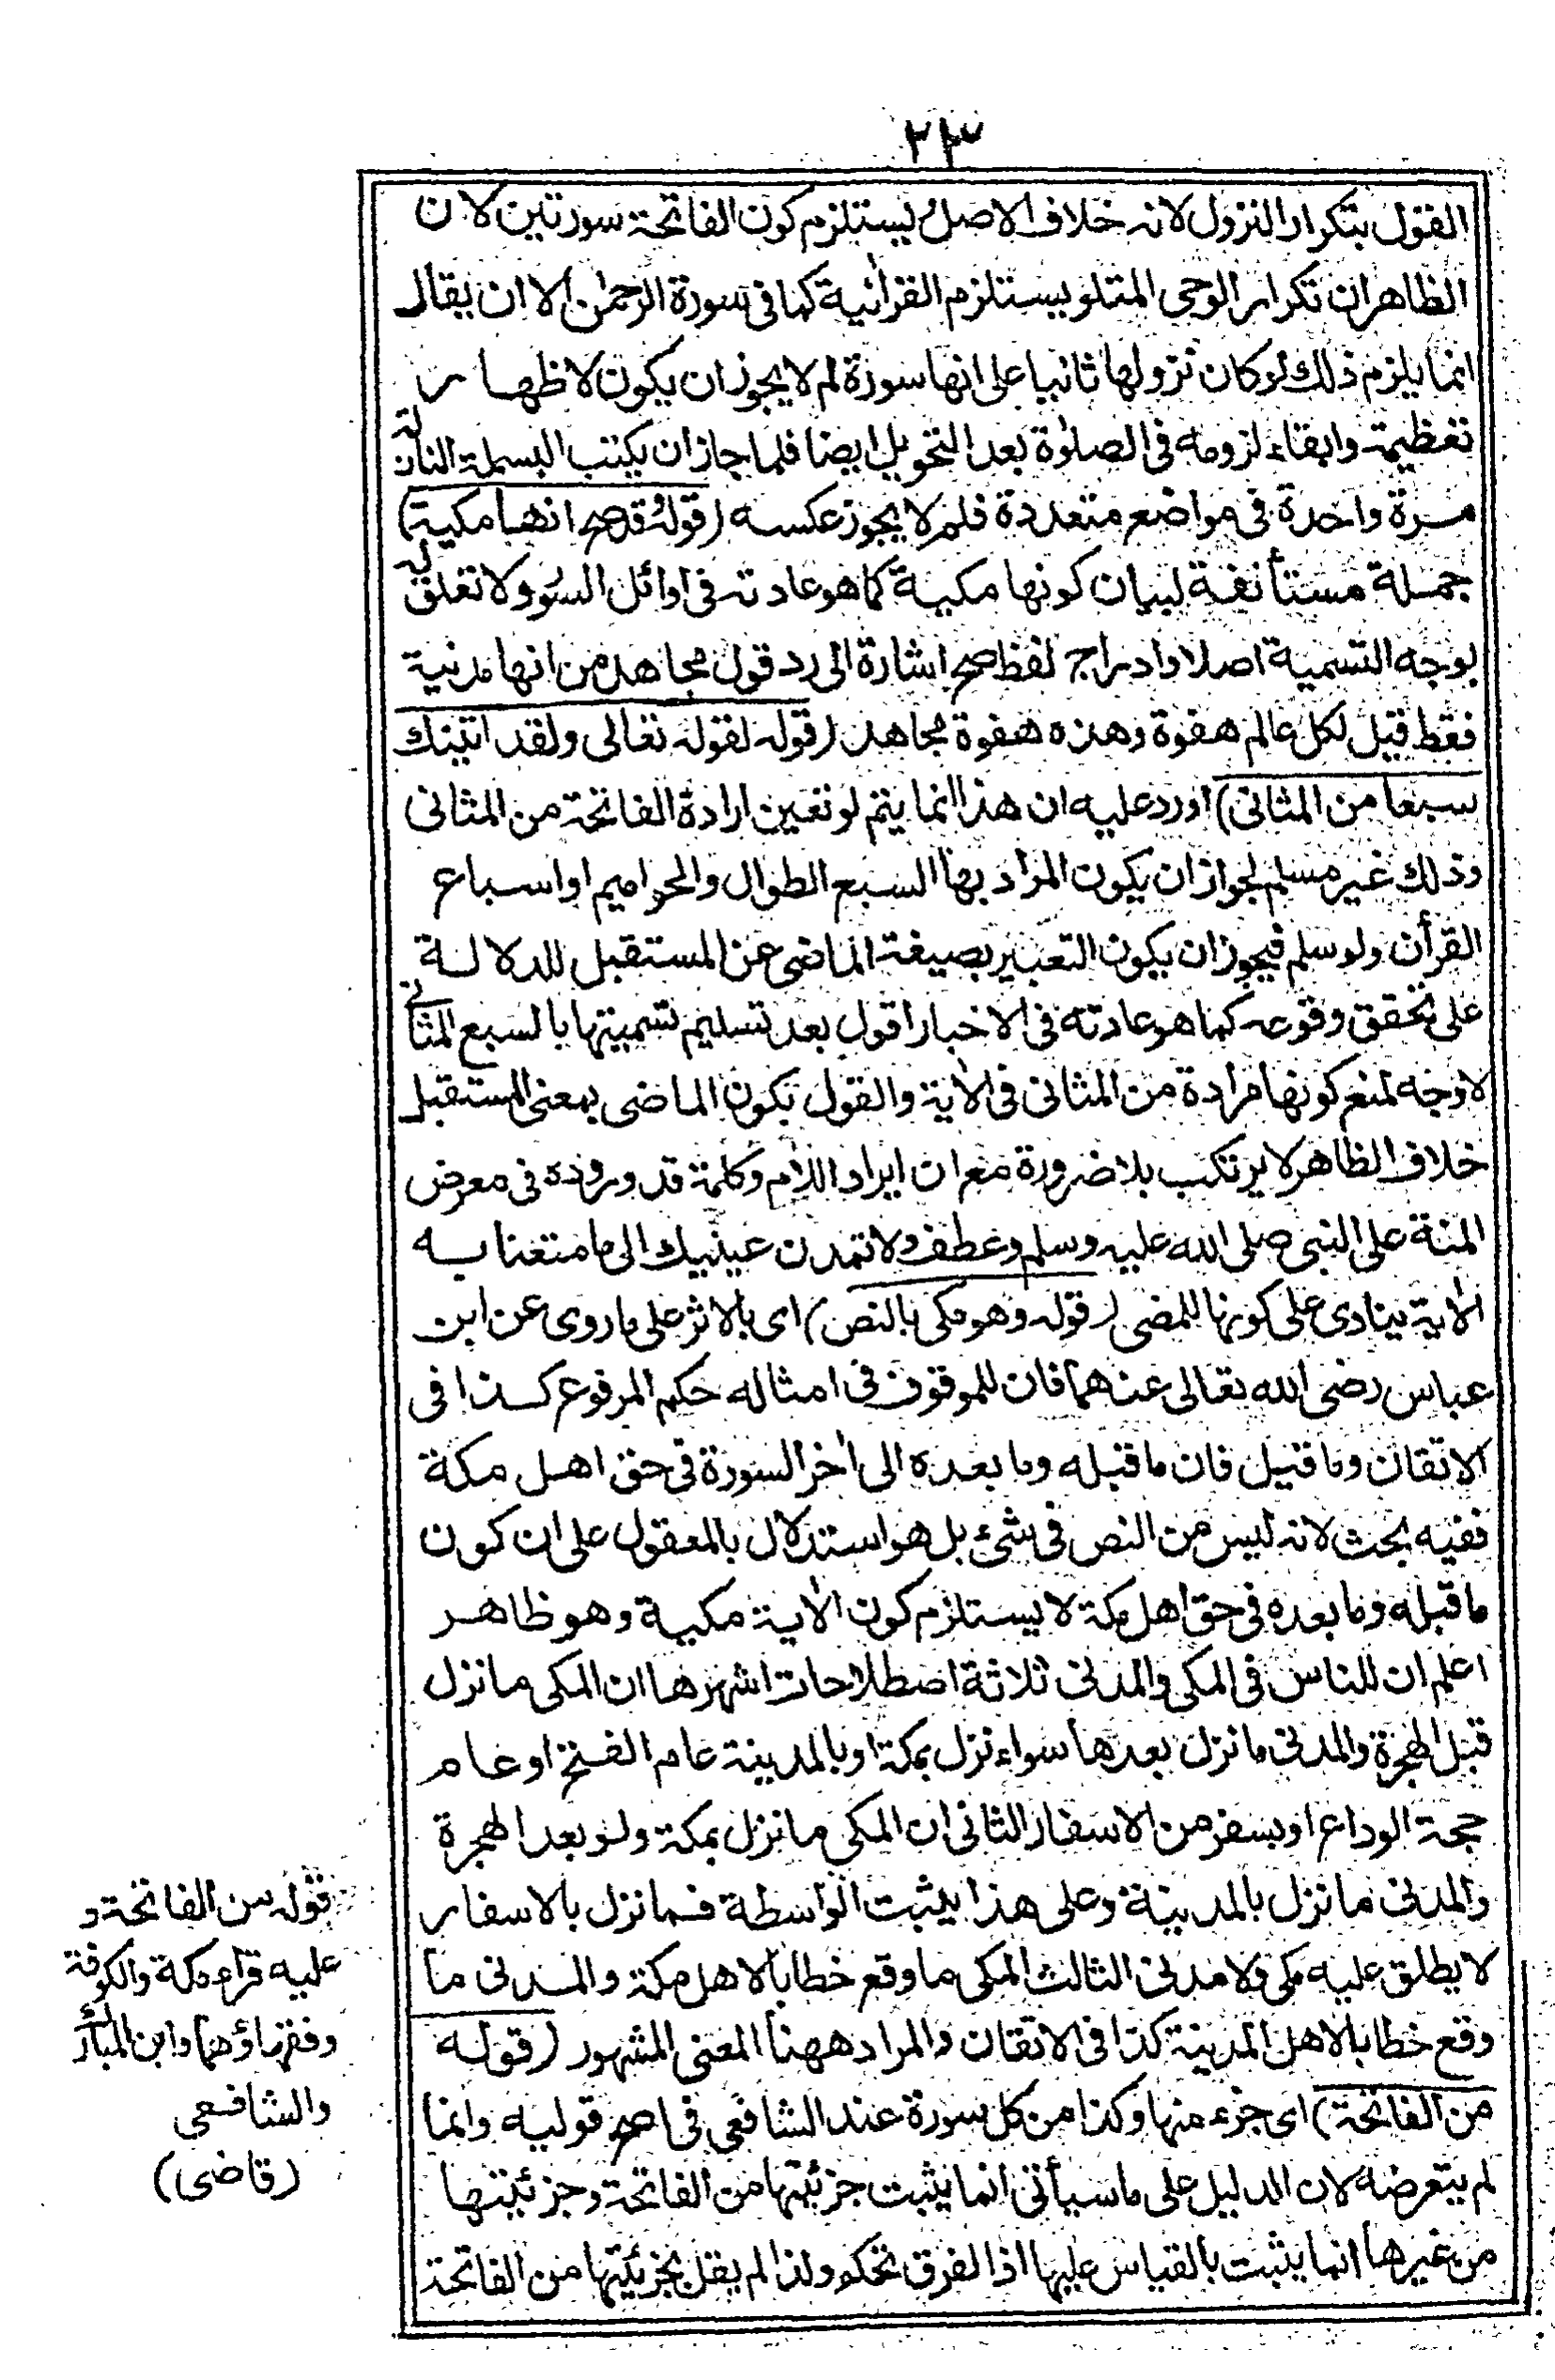 ٢٣
القول بتكرار النزول لانه خلاف الاصل يستلزم كون الفاتحة سورتين لان
الظاهر ان تكرار الوحى المتلو يستلزم القرانية كما فى سورة الرحمٰن الا ان يقال
انما يلزم ذلك لو كان نزولها ثانيا على انها سورة لم لا يجوز ان يكون لاظهار
تعظيمة وابقاء لزومه فى الصلوٰة بعد التحويل ايضا فلما جاز ان يكتب البسملة النازلة
مرة واحدة فى مواضع متعددة فلم لا يجوز عكسه (قوله وقد صح انها مكية)
جملة مستأنفة لبيان كونها مكية كما هو عادته فى اوائل السور ولا تعلق له
بوجه التسمية اصلا وادراج لفظ صح اشارة الى رد قول مجاهد من انها مدنية
فقط قيل لكل عالم هفوة وهذه هفوة مجاهد (قوله لقوله تعالى ولقد اتينك
سبعا من المثانى) اورد عليه ان هذا انما يتم لو تعين ارادة الفاتحة من المثانى
وذلك غير مسلم لجواز ان يكون المراد بها السبع الطوال والحواميم او اسباع
القرأن ولو سلم فيجوز ان يكون التعبير بصيغة الماضى عن المستقبل للدلالة
على تحقق وقوعه كما هو عادته فى الاخبار اقول بعد تسليم تسميتها بالسبع المثانى
لا وجه لمنع كونها مرادة من المثانى فى الأية والقول بكون الماضى بمعنى المستقبل
خلاف الظاهر لا يرتكب بلا ضرورة مع ان ايراد اللام وكلمة قد وروده فى معرض
المنة على النبى صلى الله عليه وسلم وعطف ولا تمدن عينيك الى ما متعنا به
الأية ينادى على كونها للمضى (قوله وهو مكى بالنص) اى بالاثر على ما روى عن ابن
عباس رضى الله تعالى عنهما فان للموقوف فى امثاله حكم المرفوع كذا فى
الاتقان وما قيل فان ما قبله وما بعده الى أخر السورة فى حق اهل مكة
ففيه بحث لانه ليس من النص فى شئ بل هو استدلال بالمعقول على ان كون
ما قبله وما بعده فى حق اهل مكة لا يستلزم كون الأية مكية وهو ظاهر
اعلم ان للناس فى المكى والمدنى ثلاثة اصطلاحات اشهرها ان المكى ما نزل
قبل الهجرة والمدنى ما نزل بعدها سواء نزل بمكة او بالمدينة عام الفتح او عام
حجة الوداع او بسفر من الاسفار الثانى ان المكى ما نزل بمكة ولو بعد الهجرة
والمدنى ما نزل بالمدينة وعلى هذا يثبت الواسطة فما نزل بالاسفار
لا يطلق عليه مكى ولا مدنى الثالث المكى ما وقع خطابا لاهل مكة والمدنى ما
وقع خطابا لاهل المدينة كذا فى الاتقان والمراد ههنا المعنى المشهور (قوله
من الفاتحة) اى جزء منها وكذا من كل سورة عند الشافعى فى اصح قوليه وانما
لم يتعرضه لان الدليل على ما سيأتى انما يثبت جزئيتها من الفاتحة وجزئيتها
من غيرها انما يثبت بالقياس عليها اذ الفرق تحكم ولذا لم يقل بجزئيتها من الفاتحة
قوله من الفاتحة و
عليه قراء مكة والكوفة
وفقهاؤهما وابن المبارك
والشافعى
(قاضى)